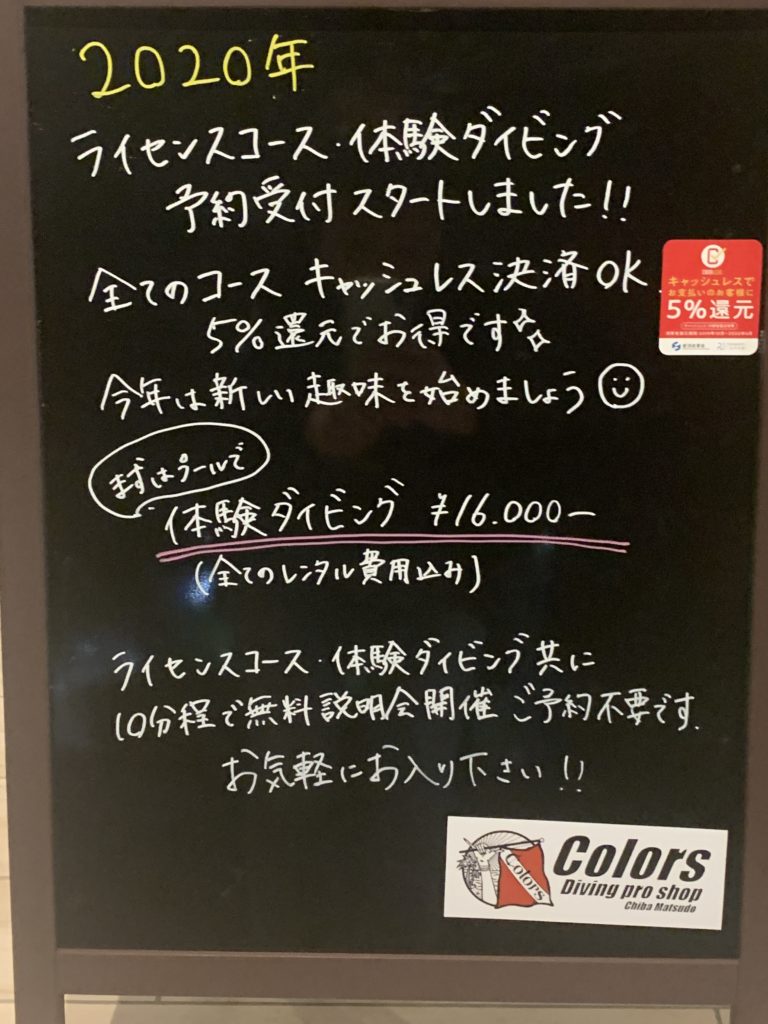 2020年
ライセンスコース・体験ダイビング
予約受付スタートしました!!
全てのコース キャッシュレス決済OK
5%還元でお得です
今年は新しい趣味を始めましょう
まずはプールで
体験ダイビング ¥16.000ー
(全てのレンタル費用込み)
ライセンスコース・体験ダイビング共に
10分程で無料説明会開催 ご予約不要です.
お気軽にお入り下さい!!
キャッシュレスで
お支払いのお客様に
5%還元
経済産業省
Colors
Colors
Diving pro shop
Chiba Matsudo